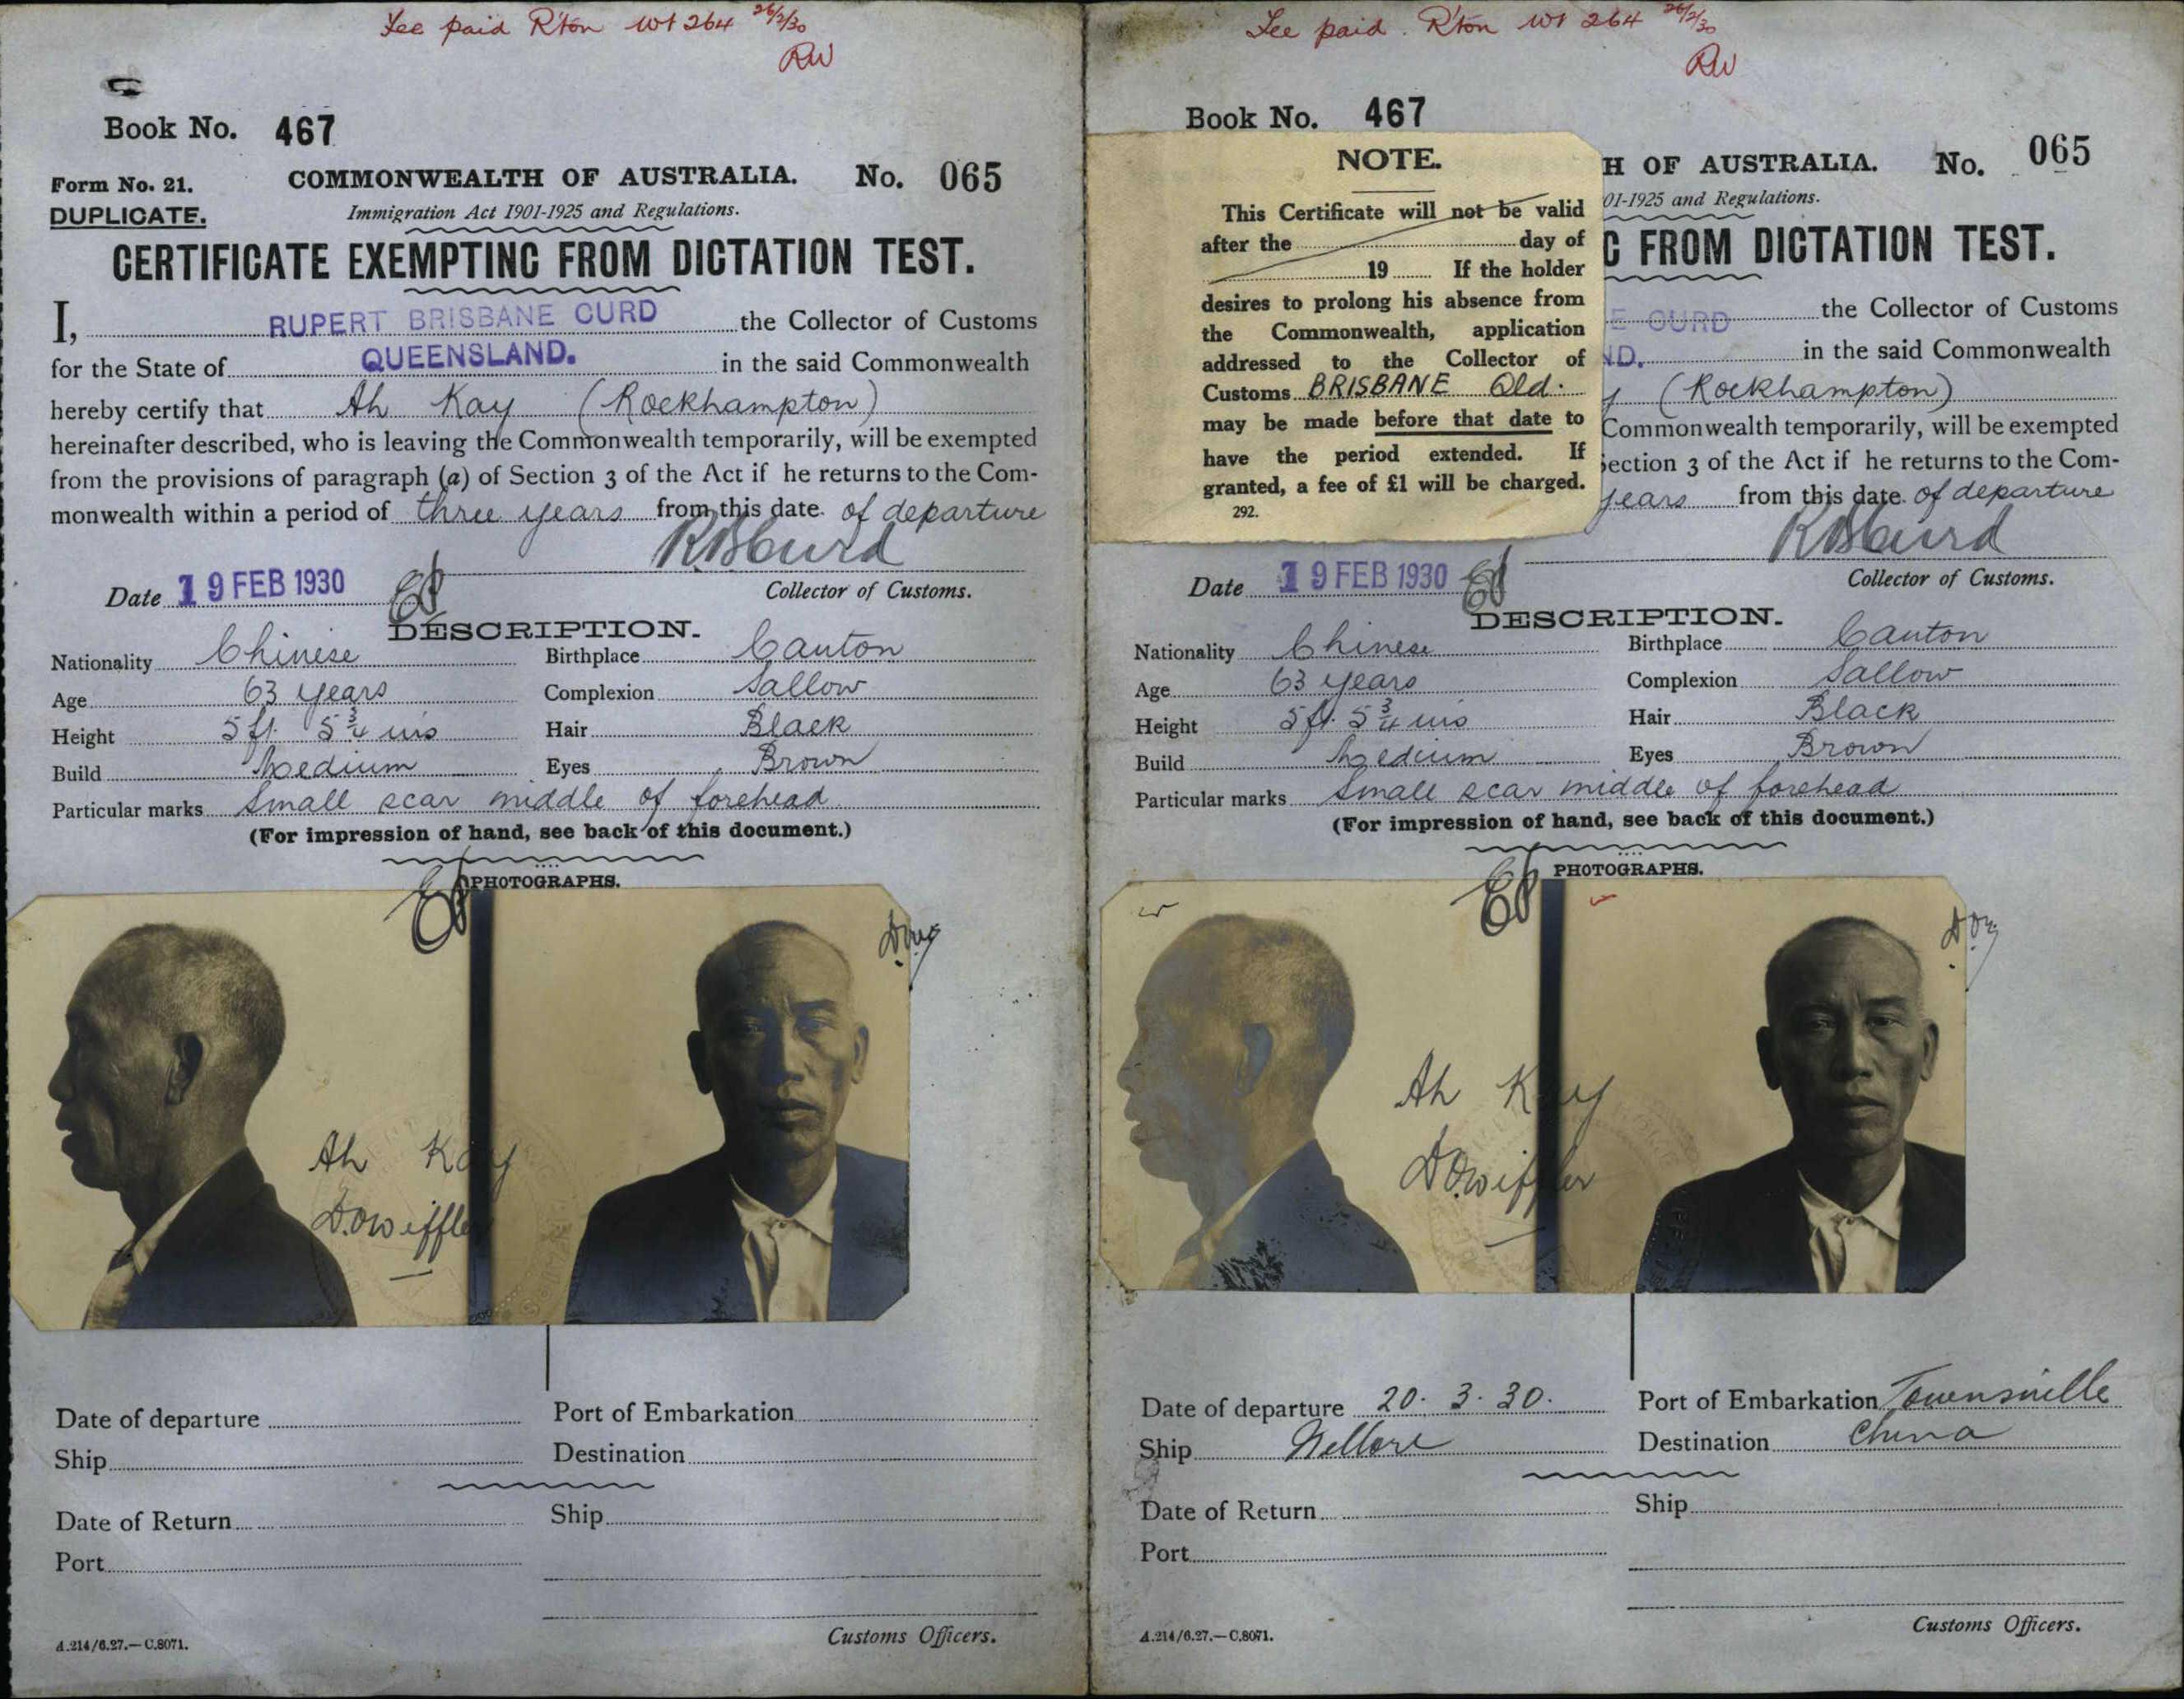 Fee paid R'ton Wt 264 26/2/30
RW
Book No. 467
Form No. 21. COMMONWEALTH OF AUSTRALIA. No. 065
DUPLICATE. Immigration Act 1901-1925 and Regulations.
CERTIFICATE EXEMPTING FROM DICTATION TEST.
I, RUPERT BRISBANE CURD the Collector of Customs
for the State of QUEENSLAND. in the said Commonwealth
hereby certify that Ah Kay (Rockhampton)
hereinafter described, who is leaving the Commonwealth temporarily, will be exempted
from the provisions of paragraph (a) of Section 3 of the Act if he returns to the Com-
monwealth within a period of three years from this date of departure
RBCurd
Date 19 FEB 1930 Collector of Customs.
DESCRIPTION.
Nationality Chinese Birthplace Canton
Age 63 years Complexion Sallow
Height 5 ft 5 3/4 ins Hair Black
Build Medium Eyes Brown
Particular marks Small scar middle of forehead
(For impression of hand, see back of this document.)
PHOTOGRAPHS.
Ah Kay
Date of departure Port of Embarkation
Ship Destination
Date of Return Ship
Port
Customs Officers.
A.214/6.27.—C.8071.
Fee paid. R'ton Wt 264 26/2/30
RW
Book No. 467
NOTE.
This Certificate will not be valid
after the day of
19 If the holder
desires to prolong his absence from
the Commonwealth, application
addressed to the Collector of
Customs BRISBANE Qld.
may be made before that date to
have the period extended. If
granted, a fee of £1 will be charged.
292.
H OF AUSTRALIA. No. 065
01-1925 and Regulations.
G FROM DICTATION TEST.
E CURD the Collector of Customs
ND. in the said Commonwealth
y (Rockhampton)
Commonwealth temporarily, will be exempted
Section 3 of the Act if he returns to the Com-
years from this date of departure
RBCurd
Date 19 FEB 1930 Collector of Customs.
DESCRIPTION.
Nationality Chinese Birthplace Canton
Age 63 years Complexion Sallow
Height 5 ft. 5 3/4 ins Hair Black
Build Medium Eyes Brown
Particular marks Small scar middle of forehead
(For impression of hand, see back of this document.)
PHOTOGRAPHS.
Ah Kay
Date of departure 20.3.30. Port of Embarkation Townsville
Ship Nellore Destination China
Date of Return Ship
Port
Customs Officers.
A.214/6.27.—C.8071.